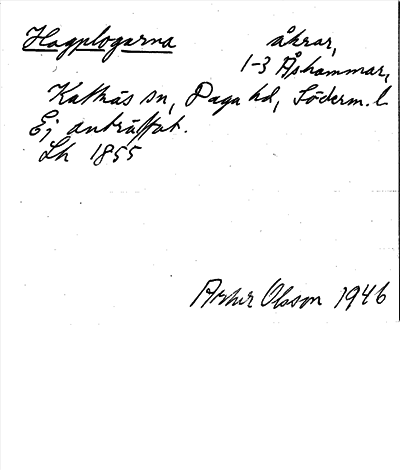 Hagplogarna åkrar,
1-3 Åshammar,
Kattnäs sn, Daga hd, Söderm. l.
Ej anträffat.
Lh 1855
Artur Olsson 1946